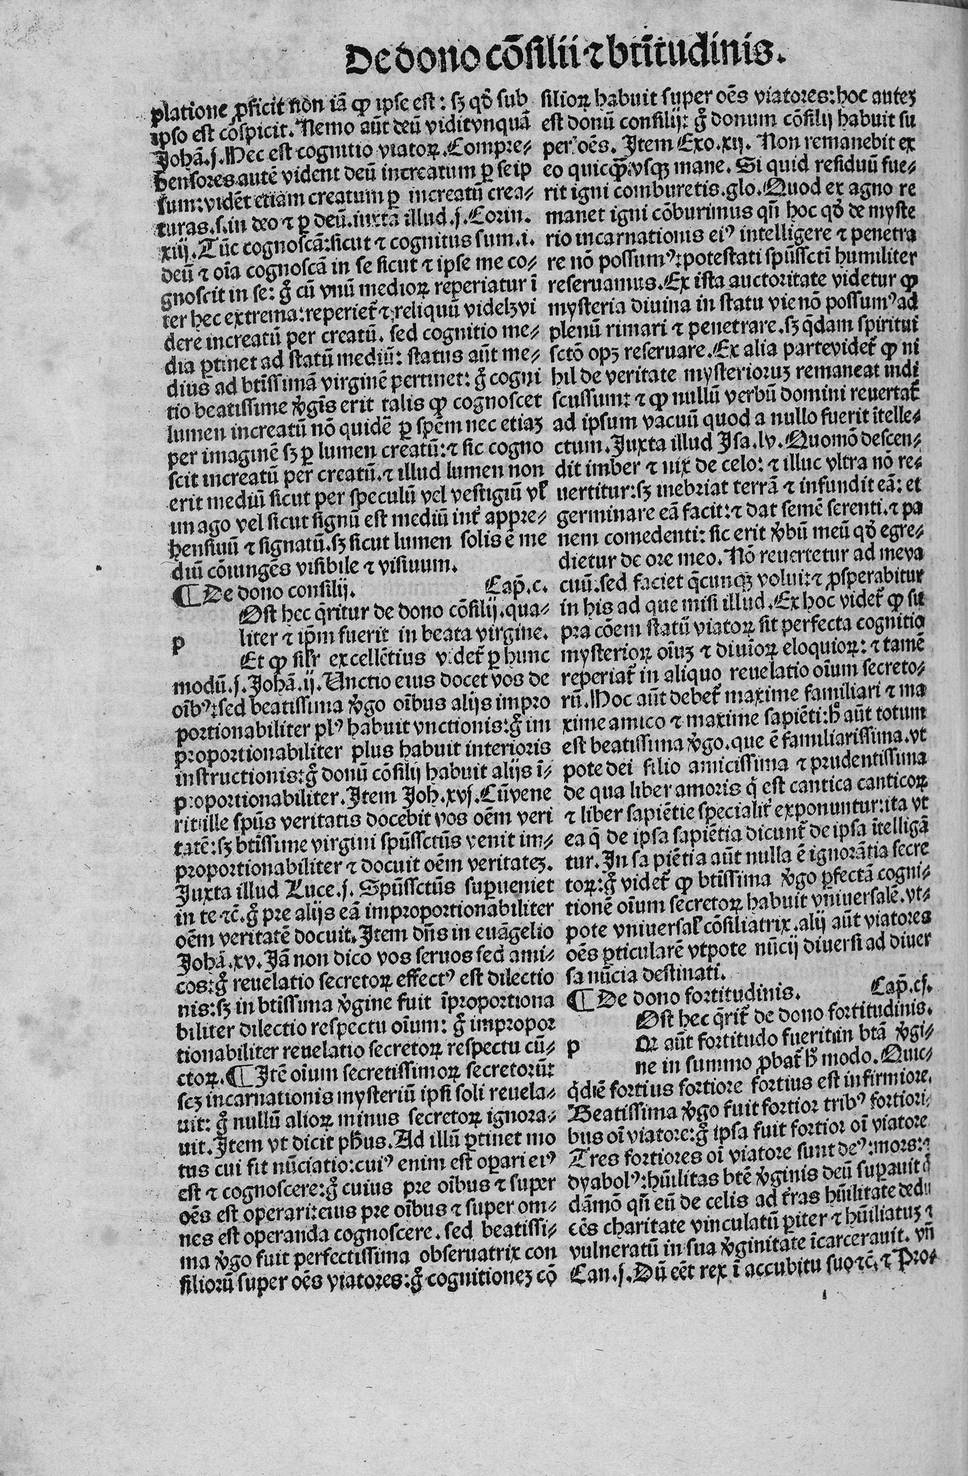 De dono cõsilii ⁊ btĩtudinis.
platione ꝓficit non iã ꝙ ipse est: sꝫ qđ sub
ipso est cõspicit. Nemo aũt deũ vidit vnquã
Johã.j. Hec est cognitio viatoꝝ. Compre-
hensores autẽ vident deũ increatum ꝑ se ip
sum: vidẽt etiam creatum ꝑ increatũ crea-
turas.s.in deo ⁊ ꝑ deũ. iuxta illud .j. Corin.
xiij. Tũc cognoscã: sicut ⁊ cognitus sum.i.
deũ ⁊ oĩa cognoscã in se sicut ⁊ ipse me co-
gnoscit in se: g̊ cũ vnũ medioꝝ reperiatur ĩ
ter hec extrema: reperiet̃ ⁊ reliquũ videlꝫ vi
dere increatũ per creatũ. sed cognitio me-
dia ꝑtinet ad statũ mediũ: status aũt me-
dius ad btĩssimã virginẽ pertinet: g̊ cogni
tio beatissime ꝟgĩs erit talis ꝙ cognoscet
lumen increatũ nõ quidẽ ꝑ spẽm nec etiaꝫ
per imaginẽ sꝫ ꝑ lumen creatũ: ⁊ sic cogno
scit increatũ per creatũ. ⁊ illud lumen non
erit mediũ sicut per speculũ vel vestigiũ vł
imago vel sicut signũ est mediũ int̃ appre-
hensiuũ ⁊ signatũ. sꝫ sicut lumen solis ẽ me
diũ cõiungẽs visibile ⁊ visiuum.
¶ De dono consilij. Cap̃.c.
p
Ost hec q̃ritur de dono cõsilij. qua-
liter ⁊ ip̃m fuerit in beata virgine.
Et ꝙ silr̃ excellẽtius videt̃ ꝑ hunc
modũ.j. Johã.ij. Vnctio eius docet vos de
oĩbꝰ: sed beatissima ꝟgo oĩbus alijs impro
portionabiliter plꝰ habuit vnctionis: g̊ im
proportionabiliter plus habuit interioris
instructionis: g̊ donũ cõsilij habuit alijs ĩ-
proportionabiliter. Item Joh.xvj. Cũ vene
rit ille spũs veritatis docebit vos oẽm veri
tatẽ: sꝫ btĩssime virgini spũssctũs venit im-
proportionabiliter ⁊ docuit oẽm veritateꝫ.
Juxta illud Luce.j. Spũssctũs supueniet
in te ⁊c̃. g̊ pre alijs eã improportionabiliter
oẽm veritatẽ docuit. Item dñs in euãgelio
Johã.xv. Jã non dico vos seruos sed ami-
cos: g̊ reuelatio secretoꝝ effectꝰ est dilectio
nis: sꝫ in btĩssima ꝟgine fuit ĩproportiona
biliter dilectio respectu oĩum: g̊ impropor
tionabiliter reuelatio secretoꝝ respectu cũ-
ctoꝝ. ¶ Itẽ oĩum secretissimoꝝ secretoruꝫ
seꝫ incarnationis mysteriũ ipsi soli reuela-
uit: g̊ nullũ alioꝝ minus secretoꝝ ignora-
uit. Item vt dicit pħus. Ad illũ ꝑtinet mo
tus cui fit nũciatio: cuiꝰ enim est oꝑari eiꝰ
est ⁊ cognoscere: g̊ cuius pre oĩbus ⁊ super
oẽs est operari: eius pre oĩbus ⁊ super om-
nes est operanda cognoscere. sed beatissi-
ma ꝟgo fuit perfectissima obseruatrix con
siliorũ super oẽs viatores: g̊ cognitioneꝫ cõ
silioꝝ habuit super oẽs viatores: hoc auteꝫ
est donũ consilij: g̊ donum cõsilij habuit su
per oẽs. Item Exo.xij. Non remanebit ex
eo quicꝗ̃ vsqꝫ mane. Si quid residuũ fue-
rit igni comburetis.glo. Quod ex agno re
manet igni cõburimus qñ hoc qđ de myste
rio incarnationis eiꝰ intelligere ⁊ penetra
re nõ possumꝰ: potestati spũsscti humiliter
reseruamus. Ex ista auctoritate videtur ꝙ
mysteria diuina in statu vie nõ possumꝰ ad
plenũ rimari ⁊ penetrare. sꝫ q̃dam spiritui
sctõ opꝫ reseruare. Ex alia parte videt̃ ꝙ ni
hil de veritate mysterioruꝫ remaneat indi
scussum: ⁊ ꝙ nullũ verbũ domini reuertat̃
ad ipsum vacuũ quod a nullo fuerit ĩtelle-
ctum. Juxta illud Isa.lv. Quomõ descen-
dit imber ⁊ nix de celo: ⁊ illuc vltra nõ re-
uertitur: sꝫ inebriat terrã ⁊ infundit eã: et
germinare eã facit: ⁊ dat semẽ serenti. ⁊ pa
nem comedenti: sic erit ꝟbũ meũ qđ egre-
dietur de ore meo. Nõ reuertetur ad me va
cuũ. sed faciet q̃cunqꝫ volui: ⁊ ꝓsperabitur
in his ad que misi illud. Ex hoc videt̃ ꝙ su
pra cõem statũ viatoꝝ sit perfecta cognitio
mysterioꝝ oĩuꝫ ⁊ diuioꝝ eloquioꝝ: ⁊ tamẽ
reperiat̃ in aliquo reuelatio oĩum secreto-
rũ. Hoc aũt debet̃ maxime familiari ⁊ ma
xime amico ⁊ maxime sapiẽti: ħ aũt totum
est beatissima ꝟgo. que ẽ familiarissima. vt
pote dei filio amicissima ⁊ prudentissima
de qua liber amoris q̃ est cantica canticoꝝ
⁊ liber sapiẽtie specialit̃ exponuntur: ita vt
ea q̃ de ipsa sapiẽtia dicunt̃ de ipsa ĩtelligã
tur. In sapiẽtia aũt nulla ẽ ignorãtia secre
toꝝ: g̊ videt̃ ꝙ btĩssima ꝟgo ꝑfectã cogni-
tionẽ oĩum secretoꝝ habuit vniuersalẽ. vt-
pote vniuersał cõsiliatrix. alij aũt viatores
oẽs ꝑticularẽ vtpote nũcij diuersi ad diuer
sa nũcia destinati.
¶ De dono fortitudinis. Cap̃.cj.
p
Ost hec q̃rit̃ de dono fortitudinis.
Or aũt fortitudo fuerit in btã ꝟgi-
ne in summo ꝓbat̃ ħ modo. Quic-
q̃diẽ fortius fortiore fortius est infirmiore.
Beatissima ꝟgo fuit fortior tribꝰ fortiori-
bus oĩ viatore: g̊ ipsa fuit fortior oĩ viatore
Tres fortiores oĩ viatore sunt deꝰ: mors: ⁊
dyabolꝰ: hũilitas btẽ ꝟginis deũ supauit q̃
dãmõ qñ eũ de celis ad t̃ras hũilitate dedu
cẽs charitate vinculatũ ꝑiter ⁊ hũiliatuꝫ ⁊
vulneratũ in sua ꝟginitate ĩcarcerauit. vñ
Can.j. Dũ eẽt rex ĩ accubitu suo ⁊c̃. ⁊ Pro-